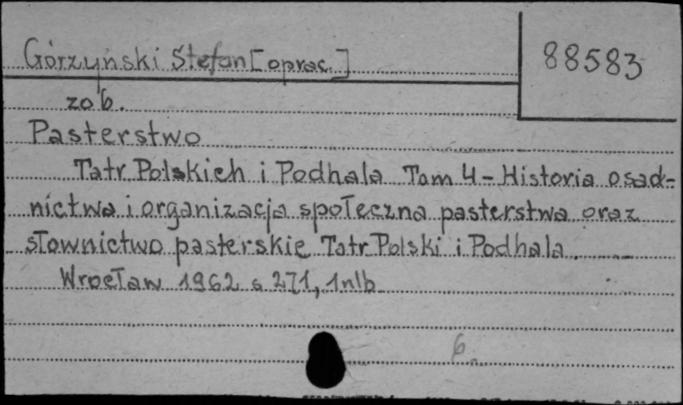 Górzyński Stefan [oprac.]
88583
zob.
Pasterstwo
Tatr Polskich i Podhala Tom 4 - Historia osad-
nictwa i organizacja społeczna pasterstwa oraz
słownictwo pasterskie Tatr Polski i Podhala.
Wrocław 1962 s 271, 1nlb
6.